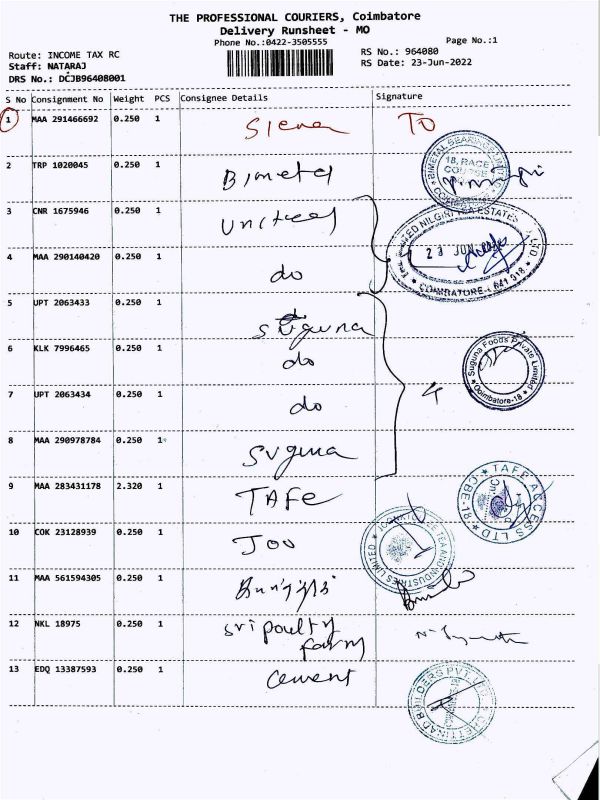 THE PROFESSIONAL COURIERS, Coimbatore
Delivery Runsheet - MO
Phone No.:0422-3505555
Page No.:1
Route: INCOME TAX RC
Staff: NATARAJ
DRS No.: DCJB96408001
RS No.: 964080
RS Date: 23-Jun-2022
S No Consignment No Weight PCS Consignee Details Signature
1 MAA 291466692 0.250 1 Siena TO
2 TRP 1020045 0.250 1 Bimetal
BIMETAL BEARINGS
18, RACE COURSE
3 CNR 1675946 0.250 1 United
UNITED NILGIRI TEA ESTATES LTD.
23 JUN
COIMBATORE - 641 018
4 MAA 290140420 0.250 1 do
5 UPT 2063433 0.250 1 Suguna
6 KLK 7996465 0.250 1 do
Suguna Foods Private Limited
Coimbatore-18
7 UPT 2063434 0.250 1 do 4
8 MAA 290978784 0.250 1 Suguna
9 MAA 283431178 2.320 1 TAFE
TAFE ACCESS LTD CBE-18
10 COK 23128939 0.250 1 Joo
TEA AND INDUSTRIES LIMITED
11 MAA 561594305 0.250 1
12 NKL 18975 0.250 1 sri poultry
farm
13 EDQ 13387593 0.250 1 cement
CHETTINAD BUILDERS PVT. LTD.